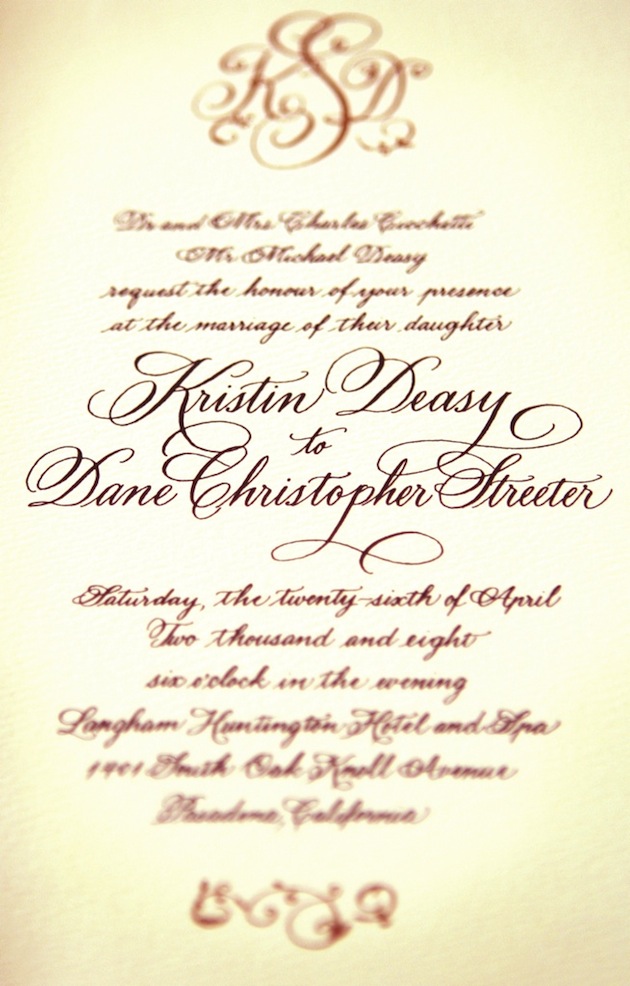 KSD
Dr and Mrs Charles Crochetti
Mr Michael Deasy
request the honour of your presence
at the marriage of their daughter
Kristin Deasy
to
Dane Christopher Streeter
Saturday, the twenty-sixth of April
Two thousand and eight
six o'clock in the evening
Langham Huntington Hotel and Spa
1401 South Oak Knoll Avenue
Pasadena, California